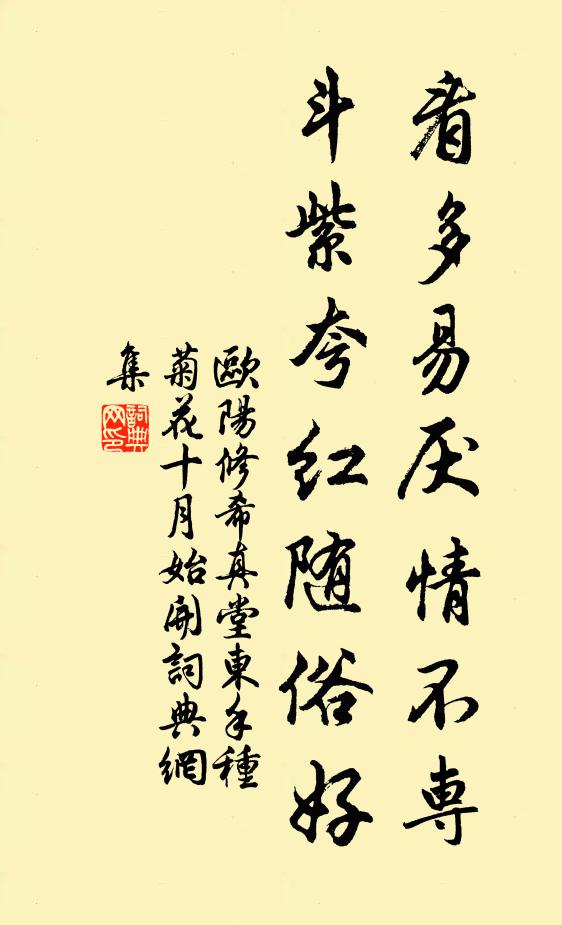 看多易厌情不専
斗紫夸红随俗好
歐陽修希真堂東手種
菊花十月始開詞典網
集
詞典网印